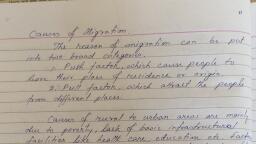 Causes of Migration.
The reason of migration can be put
into two broad categories.
1. Push factor, which cause people to
leave their place of residence or origin.
2. Pull factor, which attract the people
from different places.
Causes of rural to urban areas are mainly
due to poverty, lack of basic infrastructural
facilities like health care, education etc.